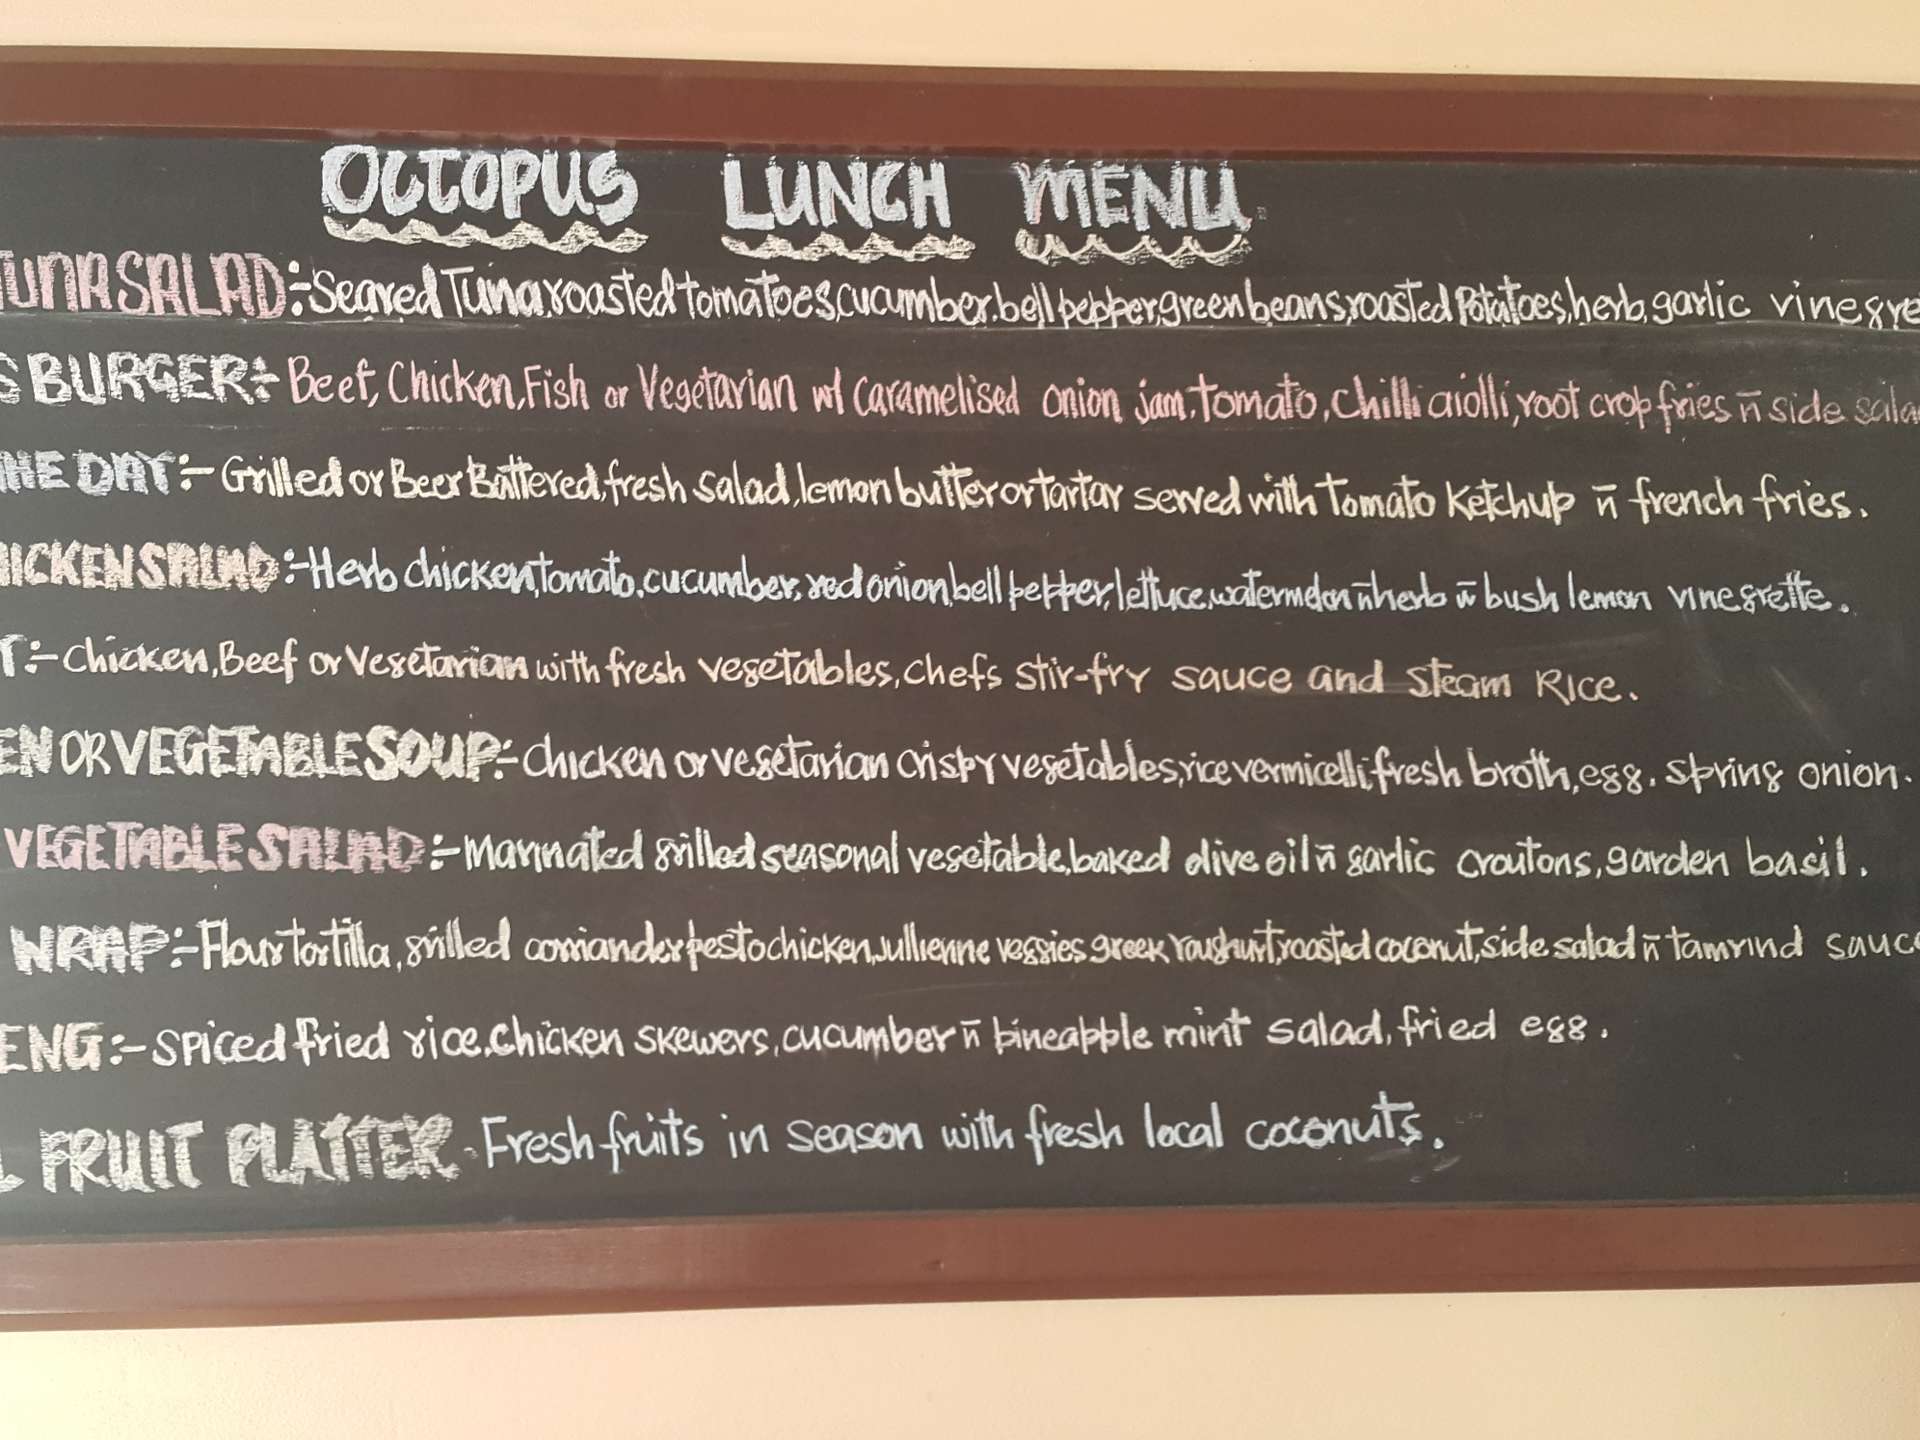 OCTOPUS LUNCH MENU
TUNA SALAD:- Seared Tuna, roasted tomatoes, cucumber, bell pepper, green beans, roasted Potatoes, herb, garlic vinegre
S BURGER:- Beef, Chicken, Fish or Vegetarian w/ caramelised onion jam, tomato, chilli aiolli, root crop fries n side sala
HE DAY:- Grilled or Beer Battered, fresh salad, lemon butter or tartar served with Tomato Ketchup n french fries.
HICKEN SALAD:- Herb chicken, tomato, cucumber, red onion, bell pepper, lettuce, watermelon n herb n bush lemon vinegrette.
T:- Chicken, Beef or Vegetarian with fresh vegetables, chefs stir-fry sauce and steam Rice.
EN OR VEGETABLE SOUP:- Chicken or vegetarian crispy vegetables, rice vermicelli, fresh broth, egg, spring onion.
VEGETABLE SALAD:- Marinated grilled seasonal vegetable, baked olive oil n garlic croutons, garden basil.
WRAP:- Flour tortilla, grilled corriander pesto chicken, Jullienne veggies, greek Youghurt, roasted coconut, side salad n tamrind sauce
ENG:- Spiced fried rice, chicken skewers, cucumber n pineapple mint salad, fried egg.
L FRUIT PLATTER - Fresh fruits in season with fresh local coconuts.